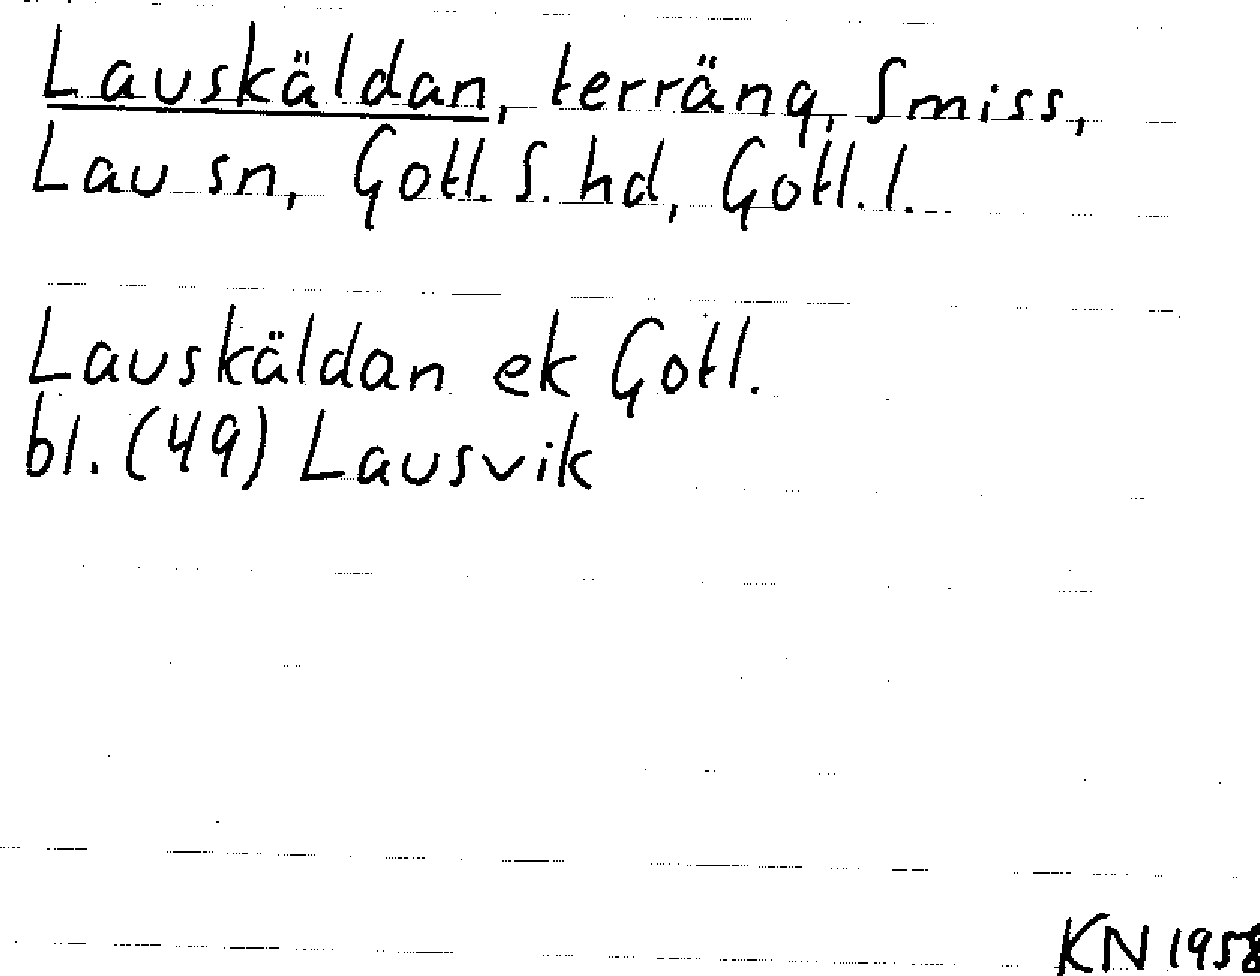 Lauskäldan, terräng, Smiss,
Lau sn, Gotl. S. hd, Gotl. l.
Lauskäldan ek Gotl.
bl. (49) Lausvik
KN 1958